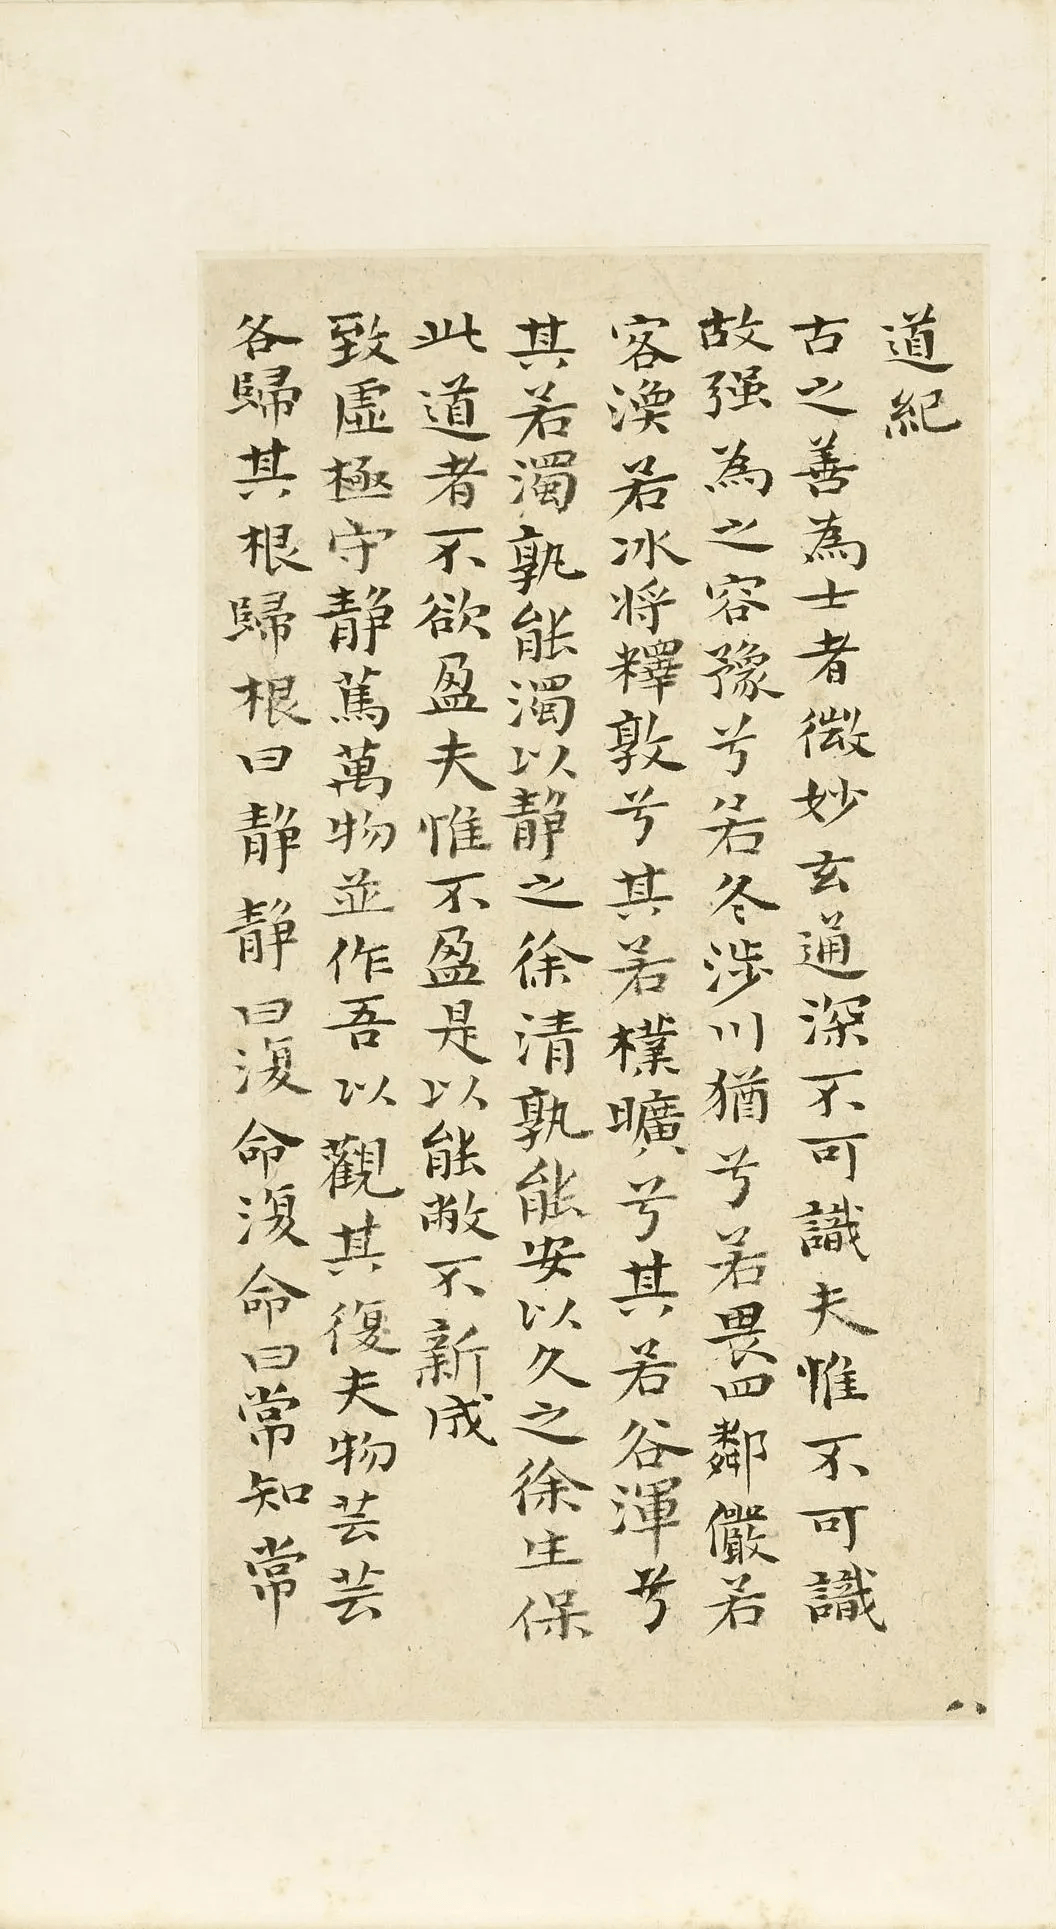 道紀
古之善為士者微妙玄通深不可識夫惟不可識
故强為之容豫兮若冬涉川猶兮若畏四鄰儼若
客渙若冰將釋敦兮其若樸曠兮其若谷渾兮
其若濁孰能濁以靜之徐清孰能安以久之徐生保
此道者不欲盈夫惟不盈是以能敝不新成
致虛極守靜篤萬物並作吾以觀其復夫物芸芸
各歸其根歸根曰靜靜曰復命復命曰常知常
八